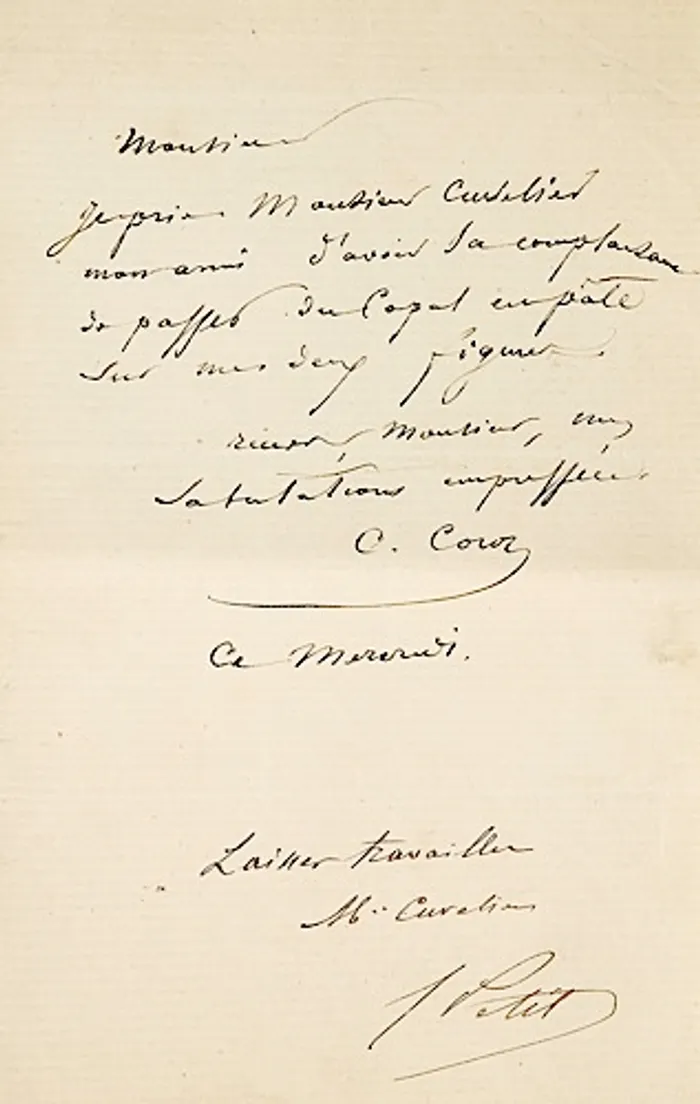 Monsieur
Je prie Monsieur Cuvelier
mon ami d'avoir la complaisance
de passer du Copal en pâte
sur mes deux figures.
recevez, Monsieur, mes
salutations empressées.
C. Corot
Ce Mercredi.
Laisser travailler
Mr. Cuvelier
Petit